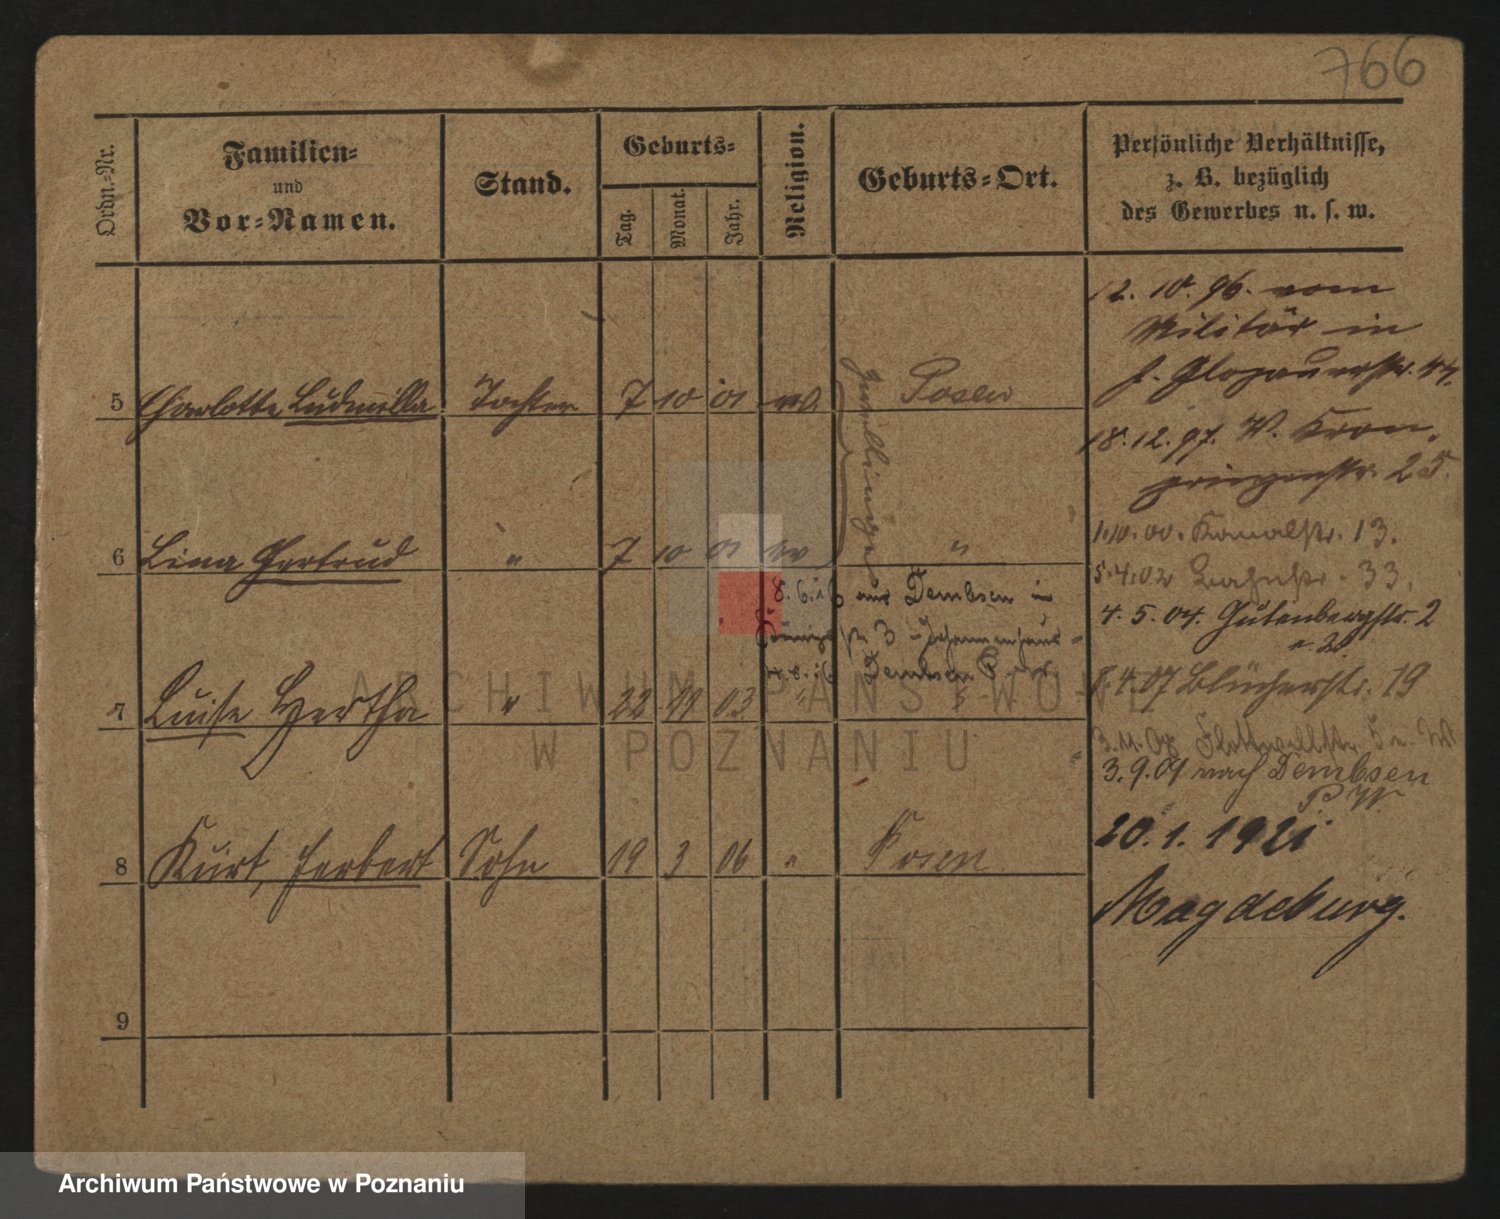 766
Ordn.-Nr.
Familien-
und
Vor-Namen.
Stand.
Geburts-
Tag.
Monat.
Jahr.
Religion.
Geburts-Ort.
Persönliche Verhältnisse,
z. B. bezüglich
des Gewerbes u. s. w.
12. 10. 96. vom
Militär in
J. Glogauerstr. 44.
18. 12. 97. W. Kron-
prinzenstr. 25.
1.10.00. Kanalstr. 13.
5.4.02 33.
4. 5. 04. Gutenbergstr. 2
4.07 Blücherstr. 19
3.11.08 Flottwellstr. 5
3.9.09 nach Dembsen
P. W.
20.1.1921
Magdeburg.
5 Charlotte Ludmilla Tochter 7 10 01 Posen
Zwillinge
6 Lina Gertrud " 7 10 01 "
8.6.16 aus Dembsen in
3 Johannenhaus-
16 Dembsen
7 Luise Hertha " 22 11 03 " "
8 Kurt, Herbert Sohn 19 3 06 " Posen
9
ARCHIWUM PAŃSTWOWE
W POZNANIU
Archiwum Państwowe w Poznaniu